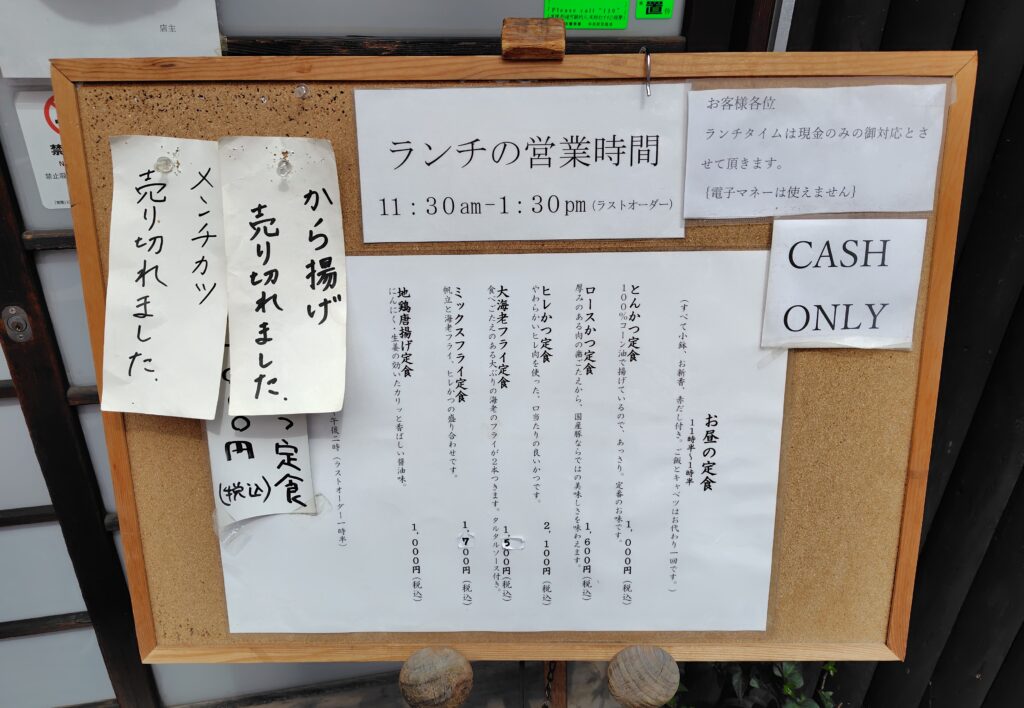 店主
Please call "110"
置
禁
メンチカツ
売り切れました.
から揚げ
売り切れました.
つ定食
0円
(税込)
ランチの営業時間
11:30am-1:30pm(ラストオーダー)
お客様各位
ランチタイムは現金のみの御対応とさ
せて頂きます。
{電子マネーは使えません}
CASH
ONLY
お昼の定食
11時半~1時半
(すべて小鉢、お新香、赤だし付き。ご飯とキャベツはお代わり一回です。)
とんかつ定食 1,000円(税込)
100%コーン油で揚げているので、あっさり。定番のお味です。
ロースかつ定食 1,600円(税込)
厚みのある肉の歯ごたえから、国産豚ならではの美味しさを味わえます。
ヒレかつ定食 2,100円(税込)
やわらかいヒレ肉を使った、口当たりの良いかつです。
大海老フライ定食 1,500円(税込)
食べごたえのある大ぶりの海老のフライが2本つきます。タルタルソース付き。
ミックスフライ定食 1,700円(税込)
帆立と海老フライ、ヒレかつの盛り合わせです。
地鶏唐揚げ定食 1,000円(税込)
にんにく・生姜の効いたカリッと香ばしい醤油味。
午後二時(ラストオーダー一時半)